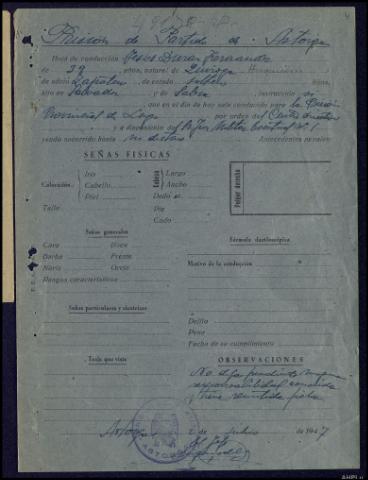 Prisión de Partido de Astorga
Hoja de conducción Jesus Duran Fernandez
de 39 años, natural de Quiroga
de oficio Zapatero de estado soltero
hijo de Salvador y de Sabina instrucción si
que en el día de hoy sale conducido para la Prisión
Provincial de Lugo por orden del Centro directivo
y a disposición del
siendo socorrido hasta su destino Antecedentes penales:
SEÑAS FISICAS
Coloración: Iris Cabello Piel
Cabeza Largo Ancho
Dedo
Talla Pie
Codo
Pulgar derecho
Señas generales
Cara Boca
Barba Frente
Nariz Oreja
Rasgos característicos
Fórmula dactiloscópica
Motivo de la conducción
Señas particulares y cicatrices
Delito
Pena
Fecha de su cumplimiento
Traje que viste
OBSERVACIONES
No deja pendiente ninguna
responsabilidad
y tiene
Astorga 2 de julio de 1947
El Jefe
ASTORGA
AHPL